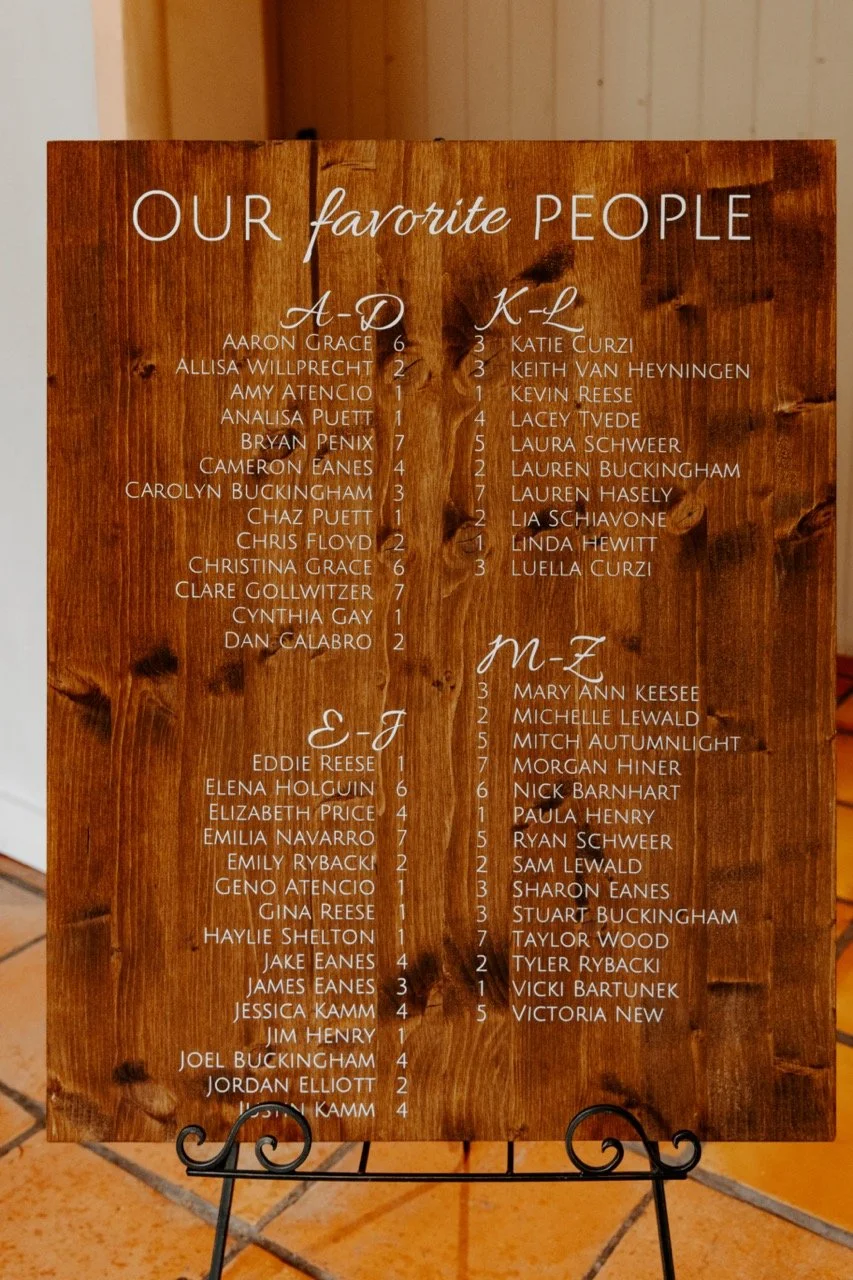 OUR favorite PEOPLE
A-D
AARON GRACE 6
ALLISA WILLPRECHT 2
AMY ATENCIO 1
ANALISA PUETT 1
BRYAN PENIX 7
CAMERON EANES 4
CAROLYN BUCKINGHAM 3
CHAZ PUETT 1
CHRIS FLOYD 2
CHRISTINA GRACE 6
CLARE GOLLWITZER 7
CYNTHIA GAY 1
DAN CALABRO 2
E-J
EDDIE REESE 1
ELENA HOLGUIN 6
ELIZABETH PRICE 4
EMILIA NAVARRO 7
EMILY RYBACKI 2
GENO ATENCIO 1
GINA REESE 1
HAYLIE SHELTON 1
JAKE EANES 4
JAMES EANES 3
JESSICA KAMM 4
JIM HENRY 1
JOEL BUCKINGHAM 4
JORDAN ELLIOTT 2
JUSTIN KAMM 4
K-L
3 KATIE CURZI
3 KEITH VAN HEYNINGEN
1 KEVIN REESE
4 LACEY TVEDE
5 LAURA SCHWEER
2 LAUREN BUCKINGHAM
7 LAUREN HASELY
2 LIA SCHIAVONE
1 LINDA HEWITT
3 LUELLA CURZI
M-Z
3 MARY ANN KEESEE
2 MICHELLE LEWALD
5 MITCH AUTUMNLIGHT
7 MORGAN HINER
6 NICK BARNHART
1 PAULA HENRY
5 RYAN SCHWEER
2 SAM LEWALD
3 SHARON EANES
3 STUART BUCKINGHAM
7 TAYLOR WOOD
2 TYLER RYBACKI
1 VICKI BARTUNEK
5 VICTORIA NEW